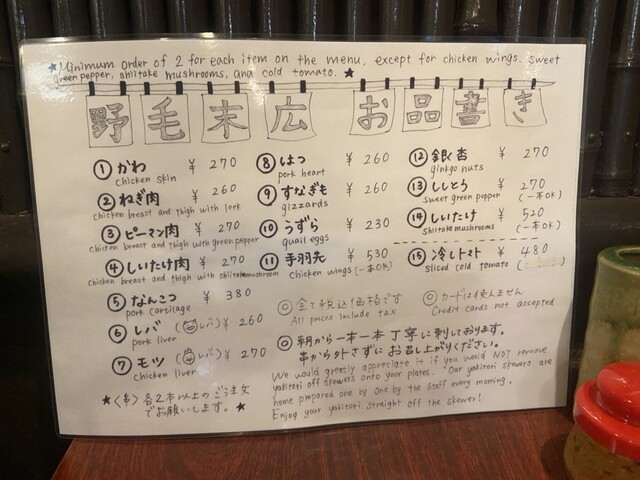 ★Minimum order of 2 for each item on the menu, except for chicken wings, sweet
green pepper, shiitake mushrooms, and cold tomato. ★
野毛末広 お品書き
① かわ ¥ 270
chicken skin
② ねぎ肉 ¥ 260
chicken breast and thigh with leek
③ ピーマン肉 ¥ 270
chicken breast and thigh with green pepper
④ しいたけ肉 ¥ 270
chicken breast and thigh with shiitake mushroom
⑤ なんこつ ¥ 380
pork cartilage
⑥ レバ (レバ) ¥ 260
pork liver
⑦ モツ (レバ) ¥ 270
chicken liver
★〈串〉各2本以上のご注文
でお願いします。★
⑧ はつ ¥ 260
pork heart
⑨ すなぎも ¥ 260
gizzards
⑩ うずら ¥ 230
quail eggs
⑪ 手羽先 ¥ 530
chicken wings (一本OK)
⑫ 銀杏 ¥ 270
ginkgo nuts
⑬ ししとう ¥ 270
sweet green pepper (一本OK)
⑭ しいたけ ¥ 520
shiitake mushrooms (一本OK)
⑮ 冷しトマト ¥ 480
sliced cold tomato
◎ 全て税込価格です
All prices include tax
◎ カードは使えません
Credit cards not accepted
◎ 朝から一本一本丁寧に刺しております。
串から外さずにお召し上がりください。
We would greatly appreciate it if you would NOT remove
yakitori off skewers onto your plates. Our yakitori skewers are
home prepared one by one by the staff every morning.
Enjoy your yakitori straight off the skewer!